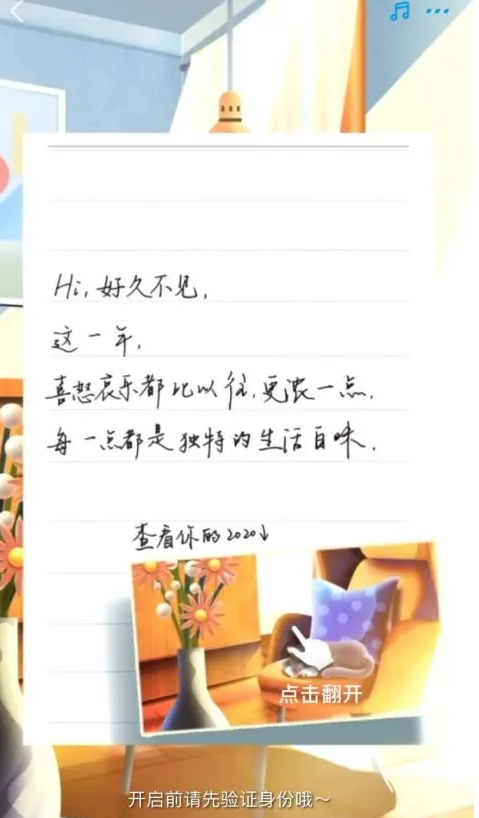 Hi,好久不见,
这一年,
喜怒哀乐都比以往,更浓一点.
每一点都是独特的生活百味.
查看你的2020↓
点击翻开
开启前请先验证身份哦～